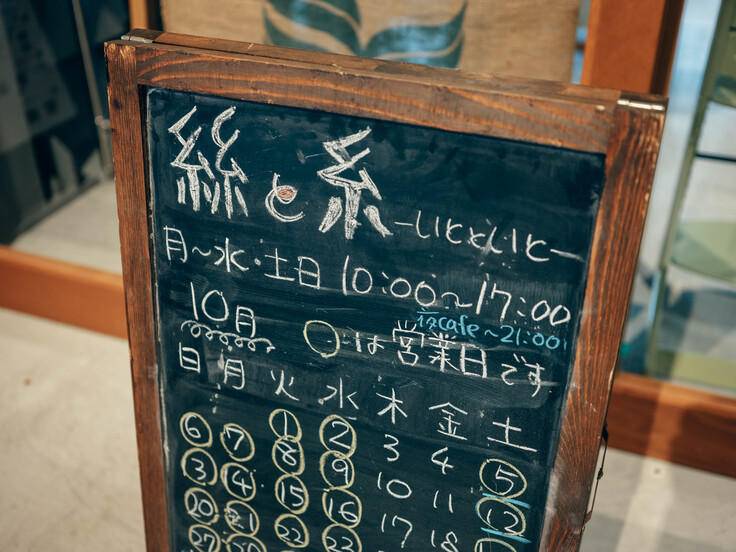 絲と糸 ーいとといとー
月〜水・土日 10:00〜17:00
夜cafe〜21:00
10月 ○は営業日です
日 月 火 水 木 金 土
1 2 3 4 5
6 7 8 9 10 11 12
13 14 15 16 17 18
20 21 22 23
27